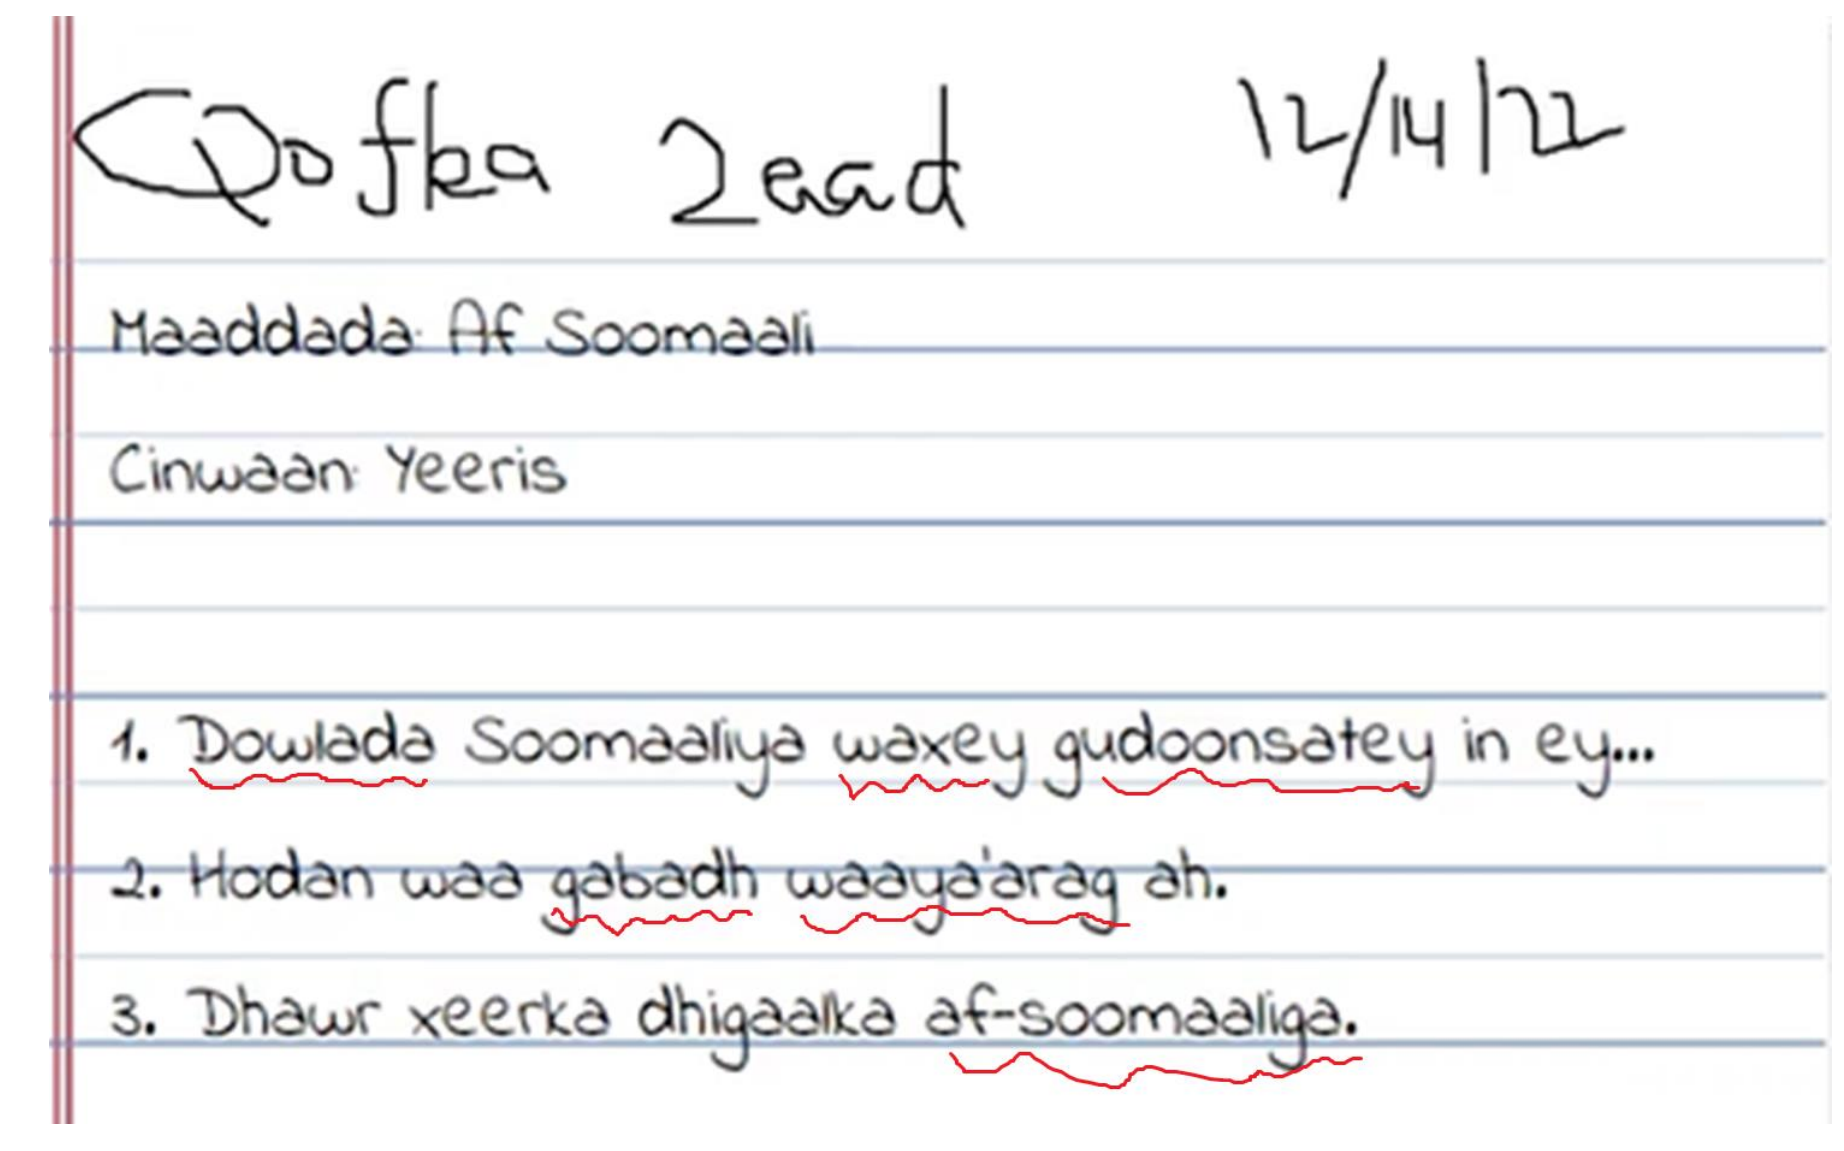 Qofka 2aad 12/14/22
Maaddada: Af Soomaali
Cinwaan: Yeeris
1. Dowlada Soomaaliya waxey gudoonsatey in ey...
2. Hodan waa gabadh waaya'arag ah.
3. Dhawr xeerka dhigaalka af-soomaaliga.